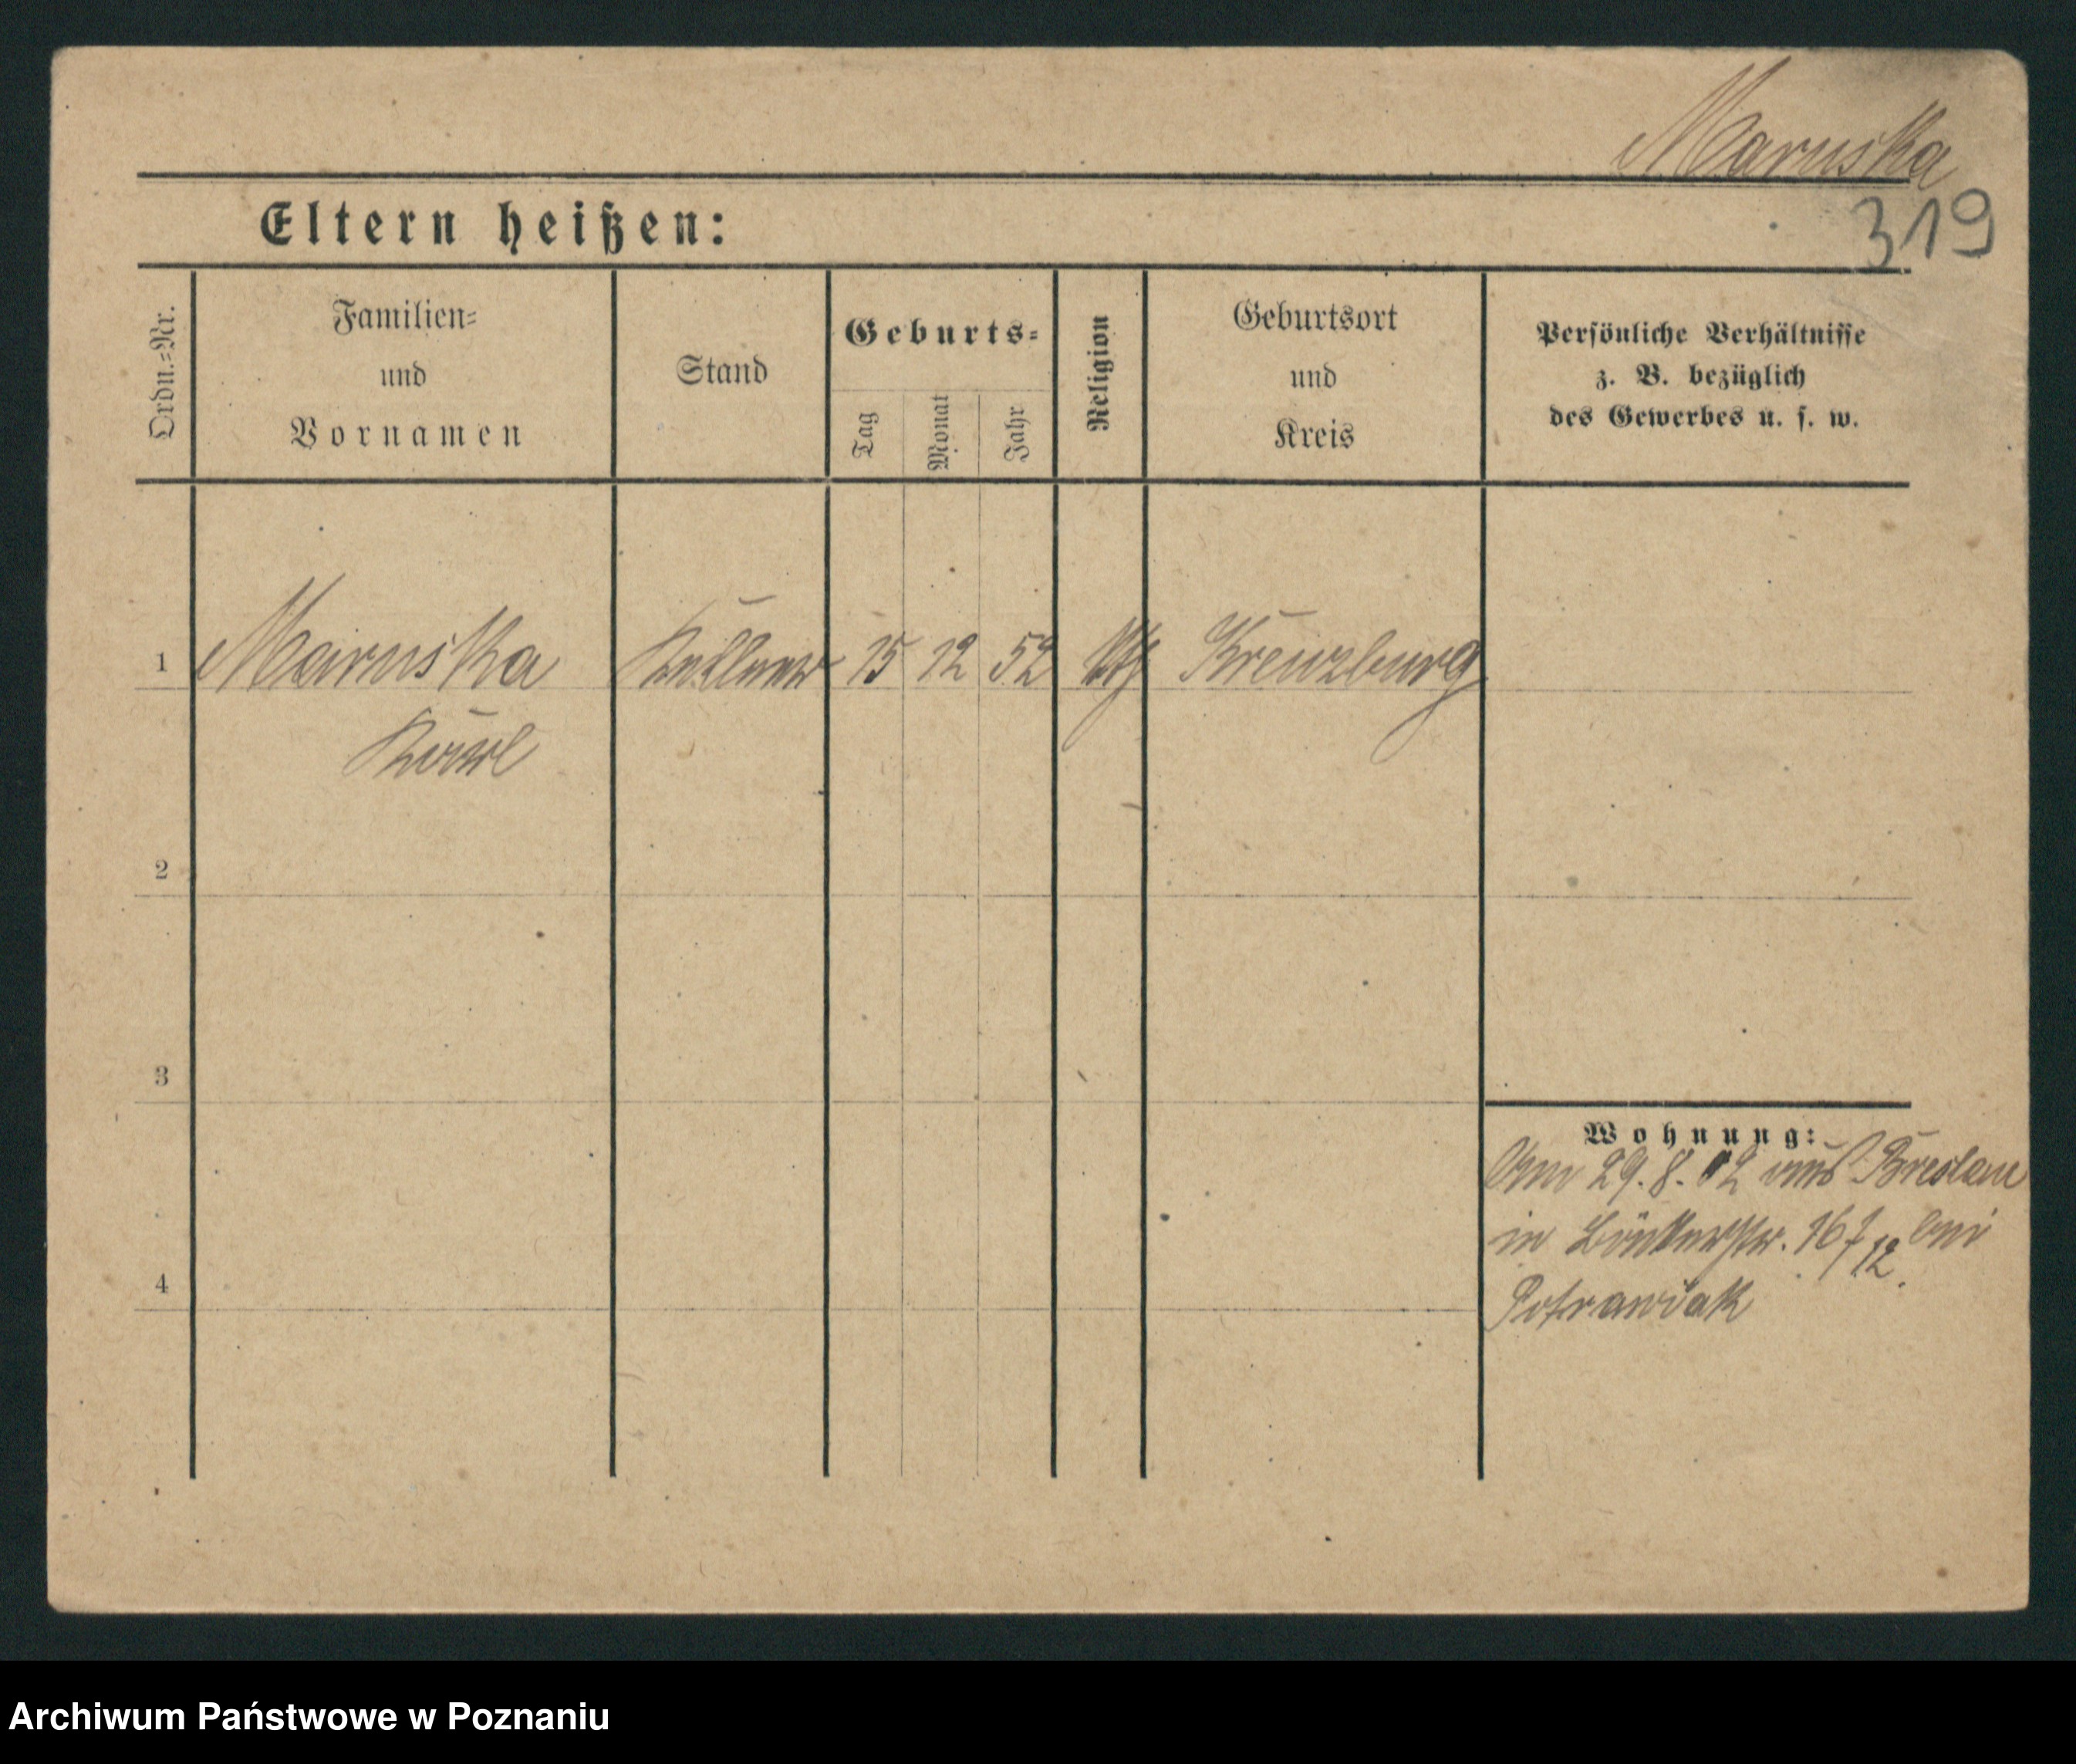 Maruska
319
Eltern heißen:
Ordn.=Nr.
Familien=
und
Vornamen
Stand
Geburts=
Tag
Monat
Jahr
Religion
Geburtsort
und
Kreis
Persönliche Verhältnisse
z. B. bezüglich
des Gewerbes u. s. w.
1 Maruska Kellner 15 12 52 Kreuzburg
Karl
2
3
4
Wohnung:
Am 29.8.02 aus Breslau
in 16/12 bei
Potrawiak
Archiwum Państwowe w Poznaniu